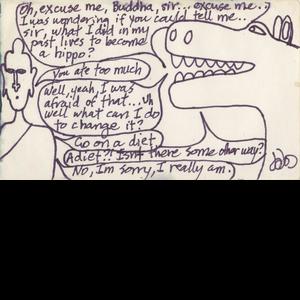 Oh, excuse me, Buddha, sir... excuse me..
I was wondering if you could tell me...
sir, what I did in my
past lives to become
a hippo?
You ate too much
Well, yeah, I was
afraid of that... uh
well what can I do
to change it?
Go on a diet
A diet?! Isnt there some other way?
No, Im sorry, I really am.